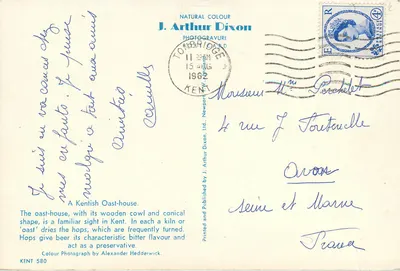 NATURAL COLOUR
J. Arthur Dixon
PHOTOGRAVURE
Je suis en vacances chez
mes enfants Je pense
malgré tout aux amis
Amitiés
Camille
TONBRIDGE
11 AM
15 AUG
1962
KENT
E R
4D
Monsieur Mme
4 rue J
Avon
Seine et Marne
France
Printed and Published by J. Arthur Dixon, Ltd., Newport
> Kentish Oast-house.
The oast-house, with its wooden cowl and conical
shape, is a familiar sight in Kent. In each a kiln or
'oast' dries the hops, which are frequently turned.
Hops give beer its characteristic bitter flavour and
act as a preservative
Colour Photograph by Alexander Hedderwick
KENT 580